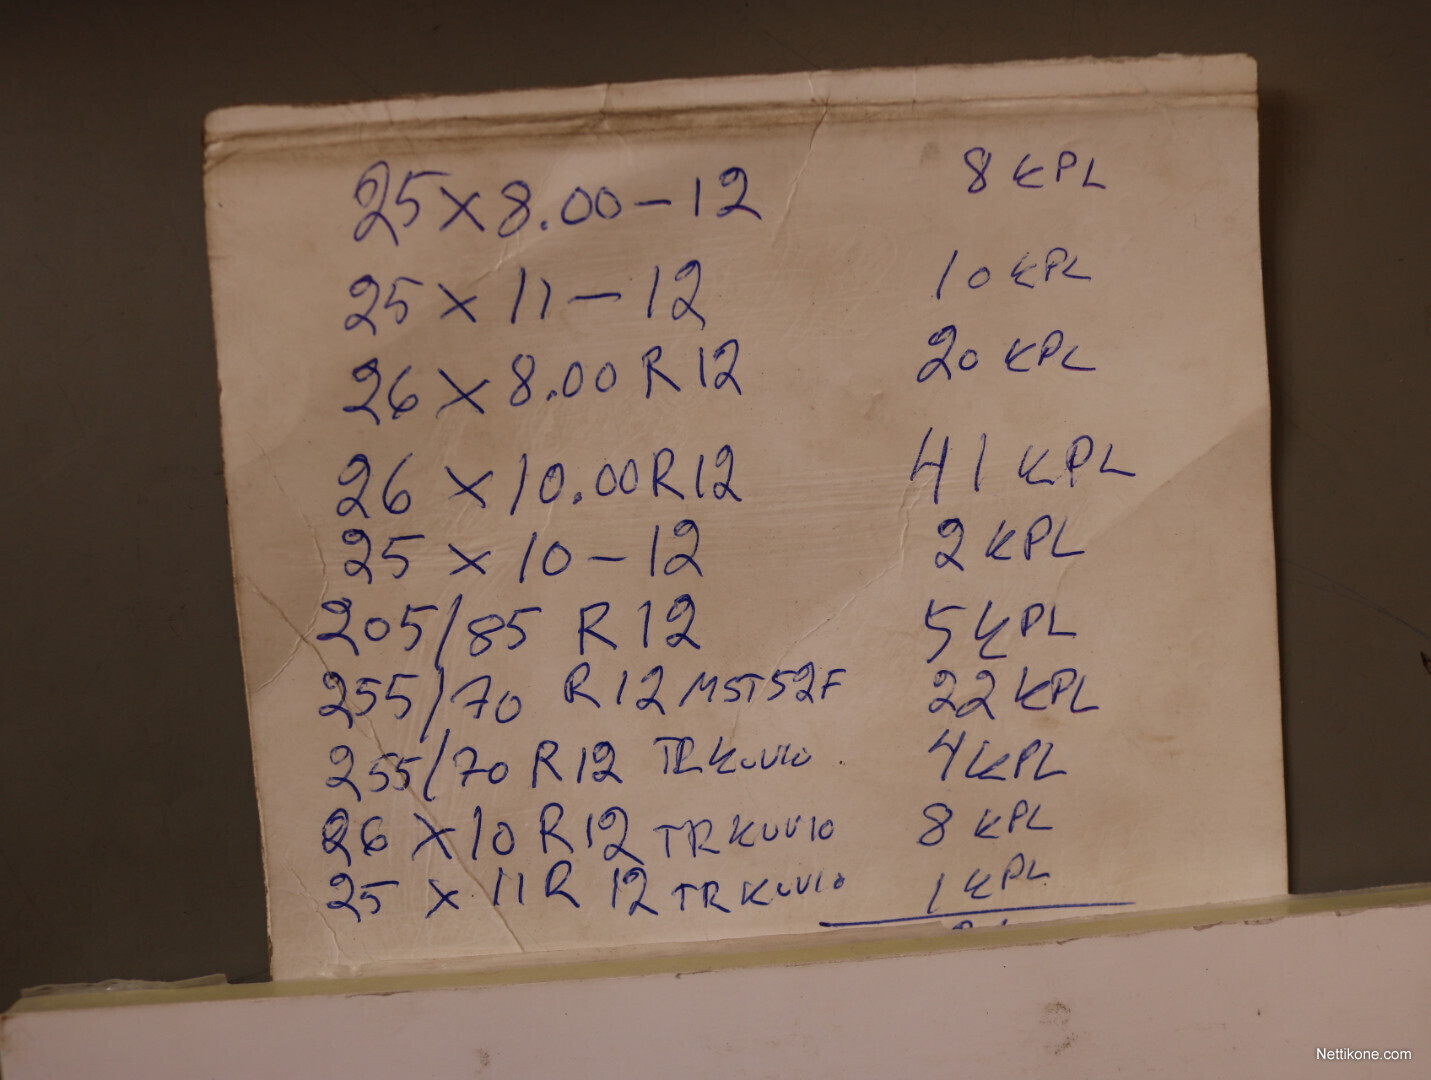 25 x 8.00 - 12 8 KPL
25 x 11 - 12 10 KPL
26 x 8.00 R 12 20 KPL
26 x 10.00 R 12 41 KPL
25 x 10 - 12 2 KPL
205/85 R 12 5 KPL
255/70 R 12 MST52F 22 KPL
255/70 R 12 TR KUVIO 4 KPL
26 x 10 R 12 TR KUVIO 8 KPL
25 x 11 R 12 TR KUVIO 1 KPL
Nettikone.com